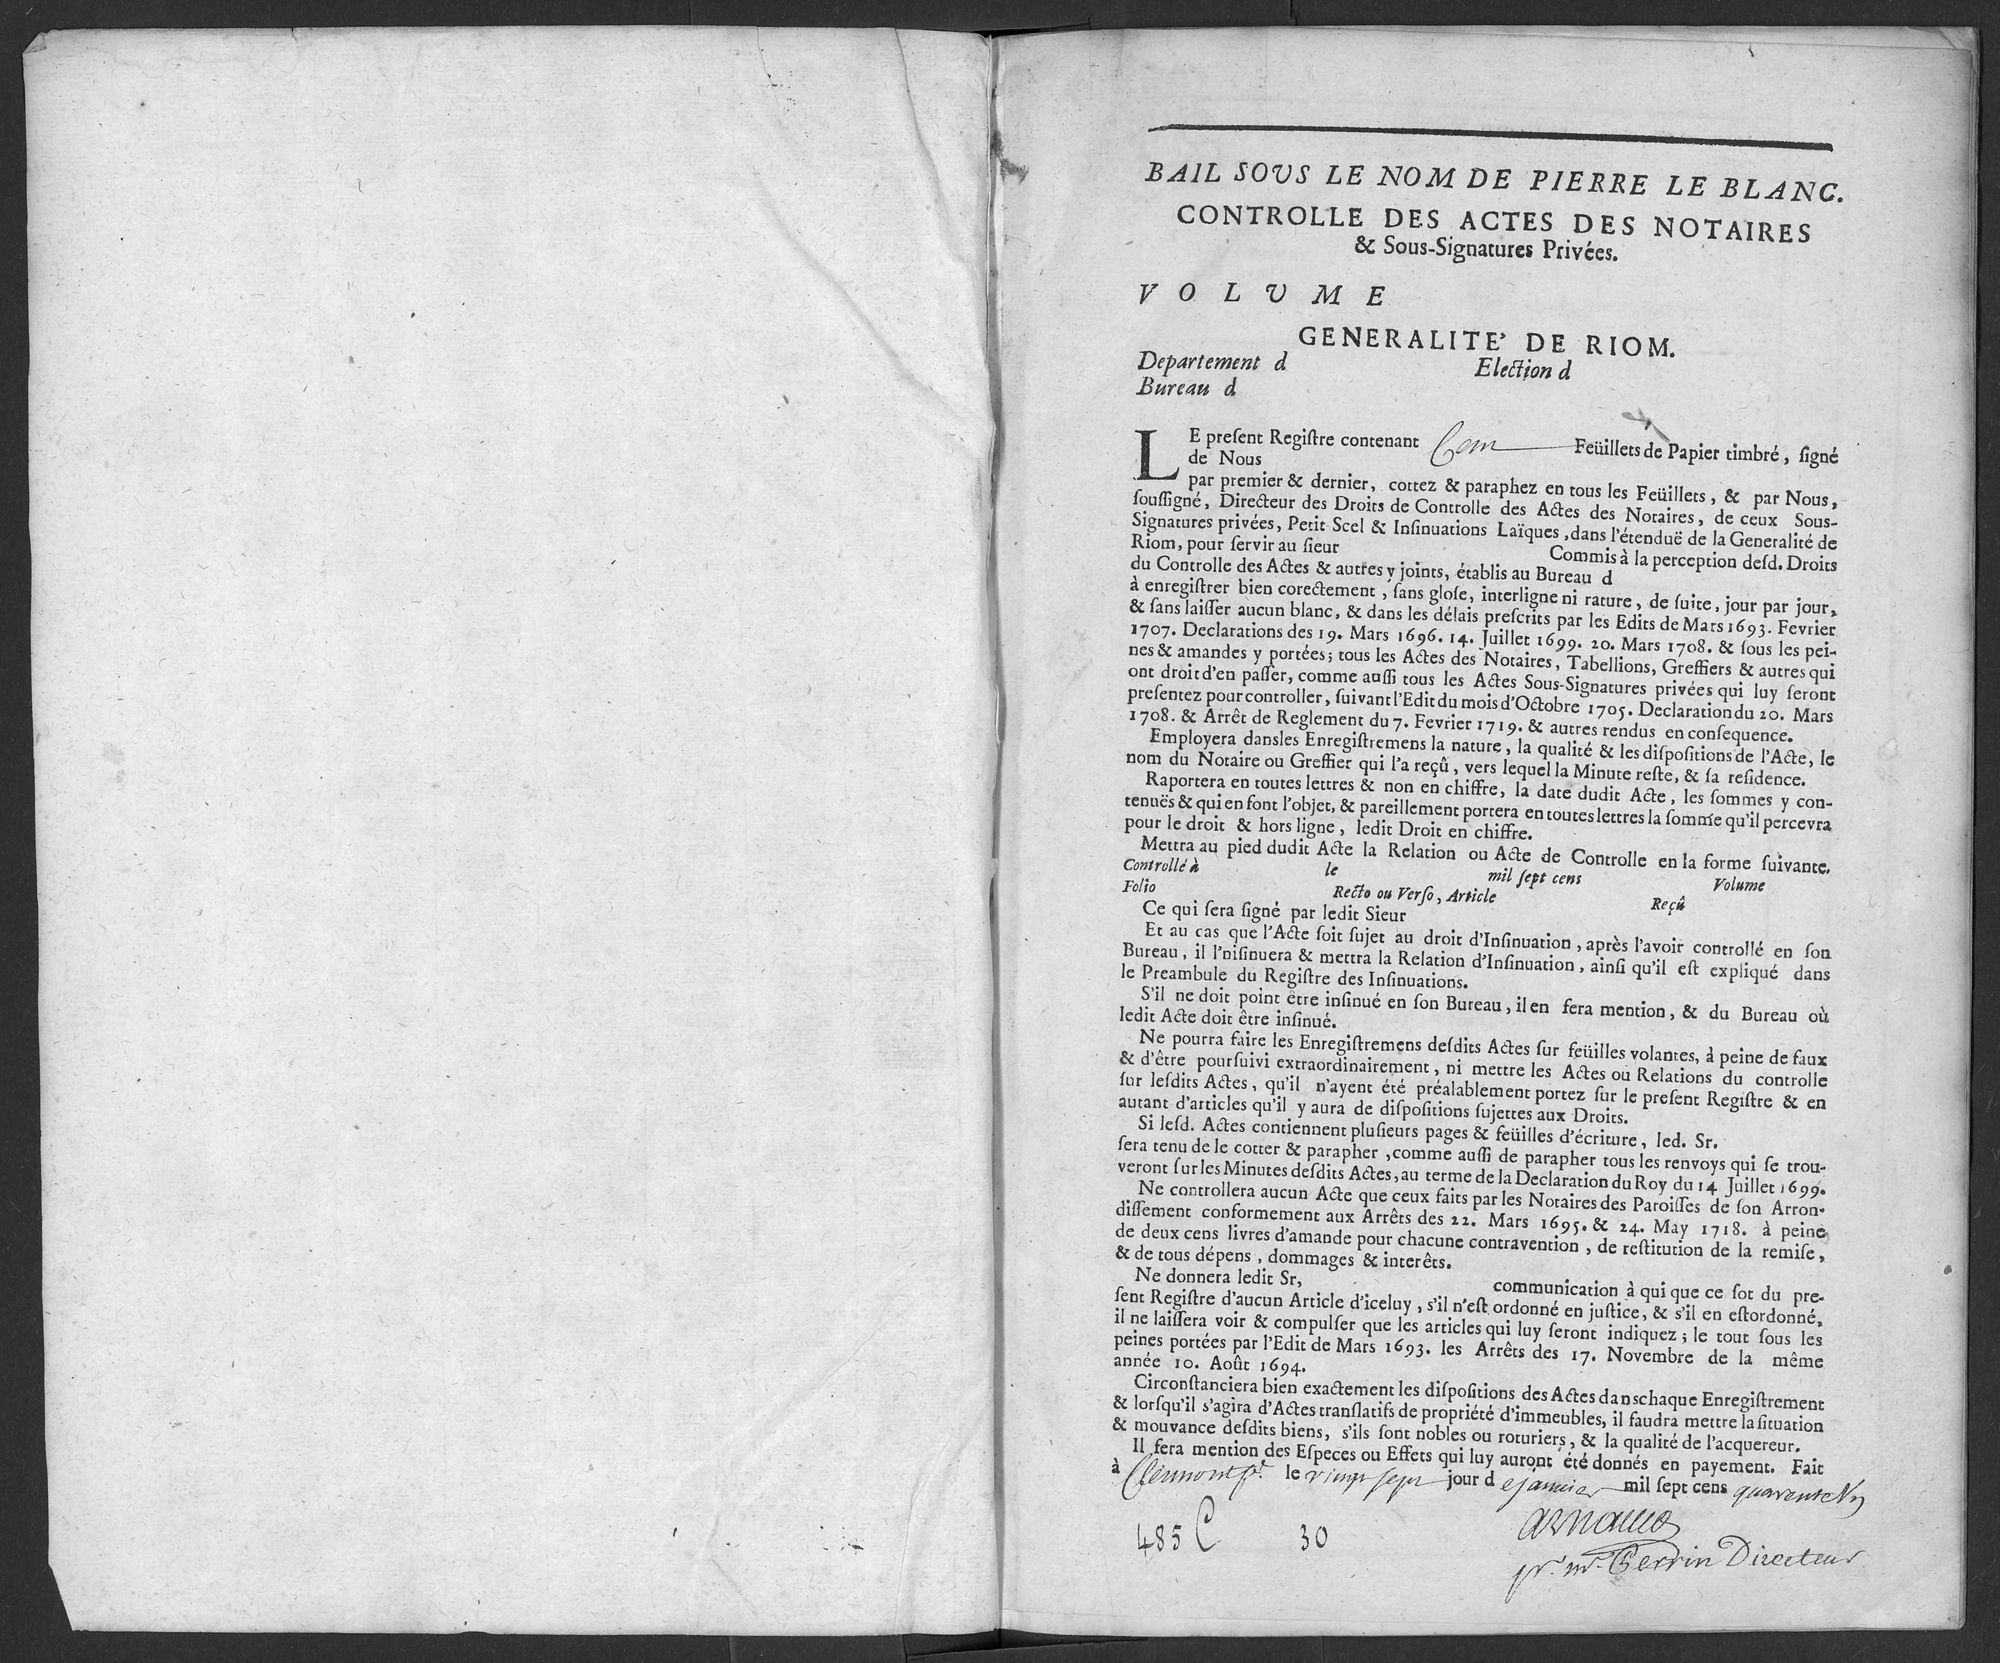 BAIL SOUS LE NOM DE PIERRE LE BLANC.
CONTROLLE DES ACTES DES NOTAIRES
& Sous-Signatures Privées.
VOLUME
GENERALITE' DE RIOM.
Departement d Election d
Bureau d
LE preſent Regiſtre contenant Cent Feüillets de Papier timbré, ſigné
de Nous
par premier & dernier, cottez & paraphez en tous les Feüillets, & par Nous,
ſouſſigné, Directeur des Droits de Controlle des Actes des Notaires, de ceux Sous-
Signatures privées, Petit Scel & Inſinuations Laïques, dans l'étenduë de la Generalité de
Riom, pour ſervir au ſieur Commis à la perception deſd. Droits
du Controlle des Actes & autres y joints, établis au Bureau d
à enregiſtrer bien corectement, ſans gloſe, interligne ni rature, de ſuite, jour par jour,
& ſans laiſſer aucun blanc, & dans les délais preſcrits par les Edits de Mars 1693. Fevrier
1707. Declarations des 19. Mars 1696. 14. Juillet 1699. 20. Mars 1708. & ſous les pei-
nes & amandes y portées; tous les Actes des Notaires, Tabellions, Greffiers & autres qui
ont droit d'en paſſer, comme auſſi tous les Actes Sous-Signatures privées qui luy ſeront
preſentez pour controller, ſuivant l'Edit du mois d'Octobre 1705. Declaration du 20. Mars
1708. & Arrêt de Reglement du 7. Fevrier 1719. & autres rendus en conſequence.
Employera dansles Enregiſtremens la nature, la qualité & les diſpoſitions de l'Acte, le
nom du Notaire ou Greffier qui l'a reçû, vers lequel la Minute reſte, & ſa reſidence.
Raportera en toutes lettres & non en chiffre, la date dudit Acte, les ſommes y con-
tenuës & qui en font l'objet, & pareillement portera en toutes lettres la ſomme qu'il percevra
pour le droit & hors ligne, ledit Droit en chiffre.
Mettra au pied dudit Acte la Relation ou Acte de Controlle en la forme ſuivante.
Controllé à le mil ſept cens Volume
Folio Recto ou Verſo, Article Reçû
Ce qui ſera ſigné par ledit Sieur
Et au cas que l'Acte ſoit ſujet au droit d'Inſinuation, après l'avoir controllé en ſon
Bureau, il l'niſinuera & mettra la Relation d'Inſinuation, ainſi qu'il eſt expliqué dans
le Preambule du Regiſtre des Inſinuations.
S'il ne doit point être inſinué en ſon Bureau, il en fera mention, & du Bureau où
ledit Acte doit être inſinué.
Ne pourra faire les Enregiſtremens deſdits Actes ſur feüilles volantes, à peine de faux
& d'être pourſuivi extraordinairement, ni mettre les Actes ou Relations du controlle
ſur leſdits Actes, qu'il n'ayent été préalablement portez ſur le preſent Regiſtre & en
autant d'articles qu'il y aura de diſpoſitions ſujettes aux Droits.
Si leſd. Actes contiennent pluſieurs pages & feüilles d'écriture, led. Sr.
ſera tenu de le cotter & parapher, comme auſſi de parapher tous les renvoys qui ſe trou-
veront ſur les Minutes deſdits Actes, au terme de la Declaration du Roy du 14 Juillet 1699.
Ne controllera aucun Acte que ceux faits par les Notaires des Paroiſſes de ſon Arron-
diſſement conformement aux Arrêts des 22. Mars 1695. & 24. May 1718. à peine
de deux cens livres d'amande pour chacune contravention, de reſtitution de la remiſe,
& de tous dépens, dommages & interêts.
Ne donnera ledit Sr, communication à qui que ce ſot du pre-
ſent Regiſtre d'aucun Article d'iceluy, s'il n'eſt ordonné en juſtice, & s'il en eſtordonné,
il ne laiſſera voir & compulſer que les articles qui luy ſeront indiquez; le tout ſous les
peines portées par l'Edit de Mars 1693. les Arrêts des 17. Novembre de la même
année 10. Août 1694.
Circonſtanciera bien exactement les diſpoſitions des Actes danschaque Enregiſtrement
& lorſqu'il s'agira d'Actes tranſlatifs de propriété d'immeubles, il faudra mettre la ſituation
& mouvance deſdits biens, s'ils ſont nobles ou roturiers, & la qualité de l'acquereur.
Il fera mention des Eſpeces ou Effets qui luy auront été donnés en payement. Fait
à Clermont le vingt sept jour d e janvier mil ſept cens
485 C 30
pr. mr. Perrin Directeur